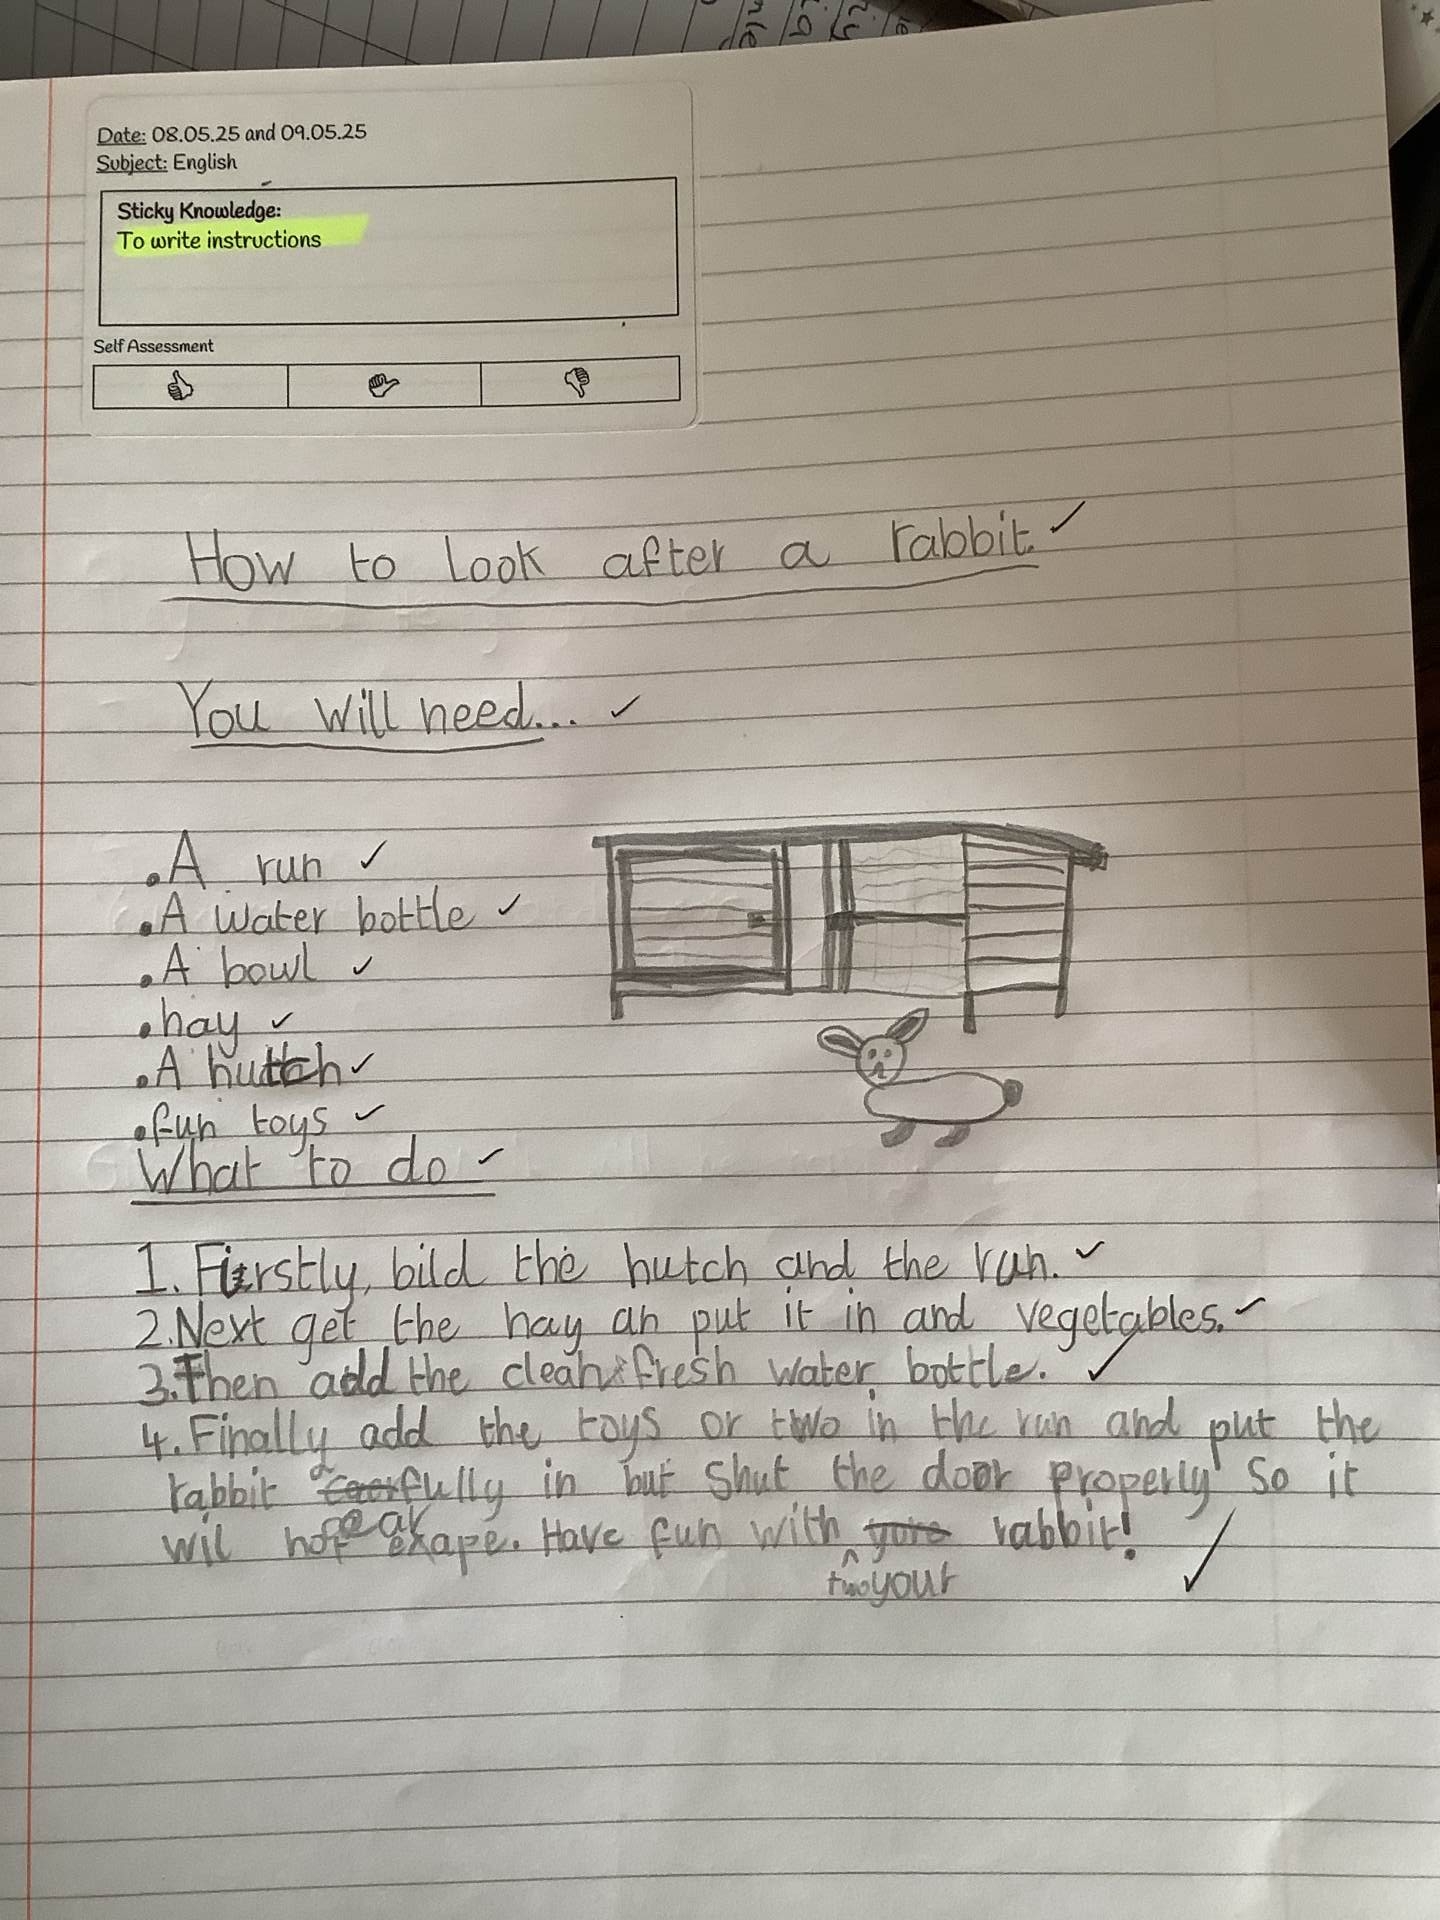 Date: 08.05.25 and 09.05.25
Subject: English
Sticky Knowledge:
To write instructions
Self Assessment
How to look after a rabbit.
You will need...
•A run
•A water bottle
•A bowl
•hay
•A hutch
•fun toys
What to do
1. Firstly, bild the hutch and the run.
2.Next get the hay an put it in and vegetables.
3.Then add the clean fresh water bottle.
4. Finally add the toys or two in the run and put the
rabbit fully in but shut the door properly so it
wil not exape. Have fun with yore rabbit!
your